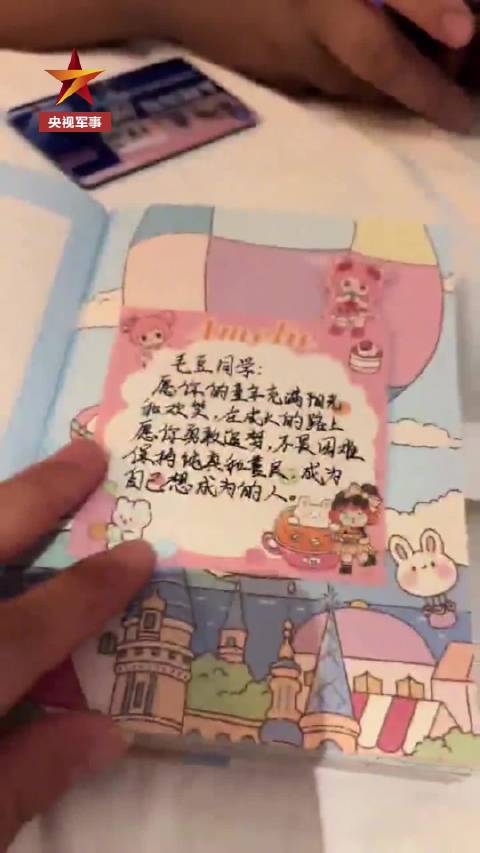 央视军事
毛豆同学:
愿你的童年充满阳光
和欢笑,在成长的路上
愿你勇敢追梦,不畏困难
保持纯真和善良,成为
自己想成为的人。